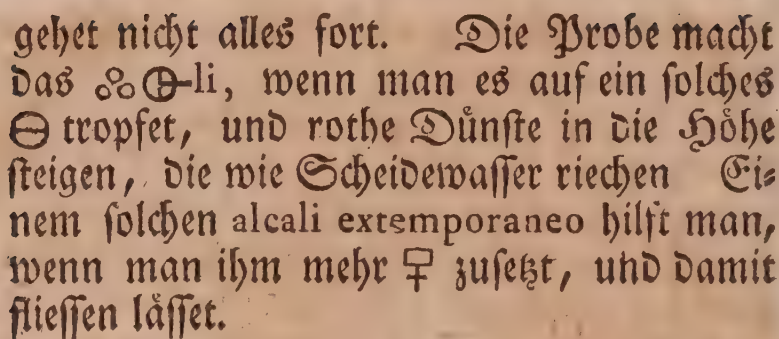 gehet nicht alles fort. Die Probe macht
das ஃ🜖-li, wenn man es auf ein solches
🜔 tropfet, und rothe Duͤnste in die Hoͤhe
steigen, die wie Scheidewasser riechen Ei⸗
nem solchen alcali extemporaneo hilft man,
wenn man ihm mehr 🜿 zusetzt, uhd damit
fliessen laͤsset.